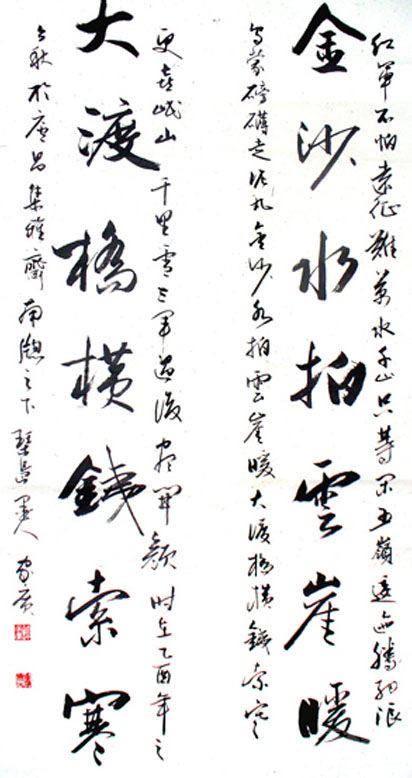 紅軍不怕遠征難萬水千山只等閑五嶺逶迤騰細浪
金沙水拍雲崖暖
烏蒙磅礴走泥丸金沙水拍雲崖暖大渡橋橫鐵索寒
更喜岷山千里雪三軍過後盡開顏 時在乙酉年之
大渡橋橫鐵索寒
秋於集雅齋南窗之下 墨人